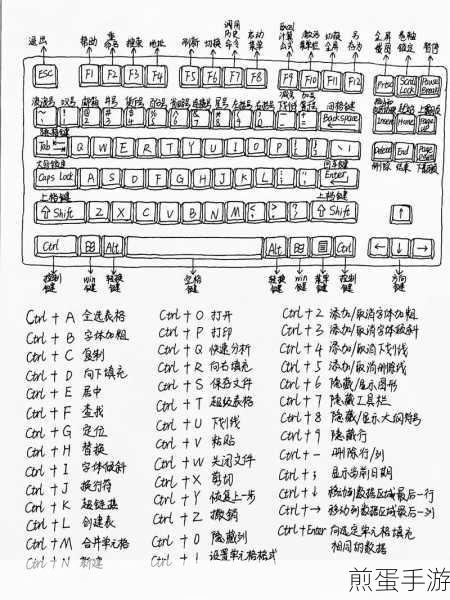 退出 帮助 重命名 搜索 地址 刷新 切换 启动菜单 激活菜单栏 切换全屏 另存为 全屏截图 卷轴锁定 暂停
ESC F1 F2 F3 F4 F5 F6 F7 F8 F9 F10 F11 F12 Scroll Lock Pause
~ ! @ 2 # 3 $ % ^ & 7 * 8 ( 9 ) - + = Backspace Insert Home Page up
Tab Q W E R T Y U I O P { [ } ] \ Delete End Page
大写锁定 回车键 删除 结束
Caps Lock A S D F G H J K L : ; " ' Enter
上档键 上档键
Shift Z X C V B N M < > ? Shift ↑
Ctrl Alt Alt Ctrl ← ↓ →
控制键 win键 转换键 空格键 转换键 win键 菜单键 控制键 方向键
Ctrl + A 全选表格
Ctrl + B 字体加粗
Ctrl + C 复制
Ctrl + D 向下填充
Ctrl + E 居中
Ctrl + F 查找
Ctrl + G 定位
Ctrl + H 替换
Ctrl + I 字体倾斜
Ctrl + J 换行符
Ctrl + K 超链接
Ctrl + L 创建表
Ctrl + M 合并单元格
Ctrl + N 新建
Ctrl + O 打开
Ctrl + P 打印
Ctrl + Q 快速分析
Ctrl + R 向右填充
Ctrl + S 保存文件
Ctrl + T 超级表格
Ctrl + U 下划线
Ctrl + V 粘贴
Ctrl + W 关闭文件
Ctrl + X 剪切
Ctrl + Y 恢复上一步
Ctrl + Z 撤销
Ctrl + 0 隐藏列
Ctrl + 1 设置单元格格式
Ctrl + 2 添加/取消字体加粗
Ctrl + 3 添加/取消字体倾斜
Ctrl + 4 添加/取消下划线
Ctrl + 5 添加/取消删除线
Ctrl + 6 隐藏/显示图形
Ctrl + 7 隐藏工具栏
Ctrl + 8 隐藏/显示大纲符号
Ctrl + 9 隐藏行
Ctrl + - 删除行/列
Ctrl + ; 显示当前日期
Ctrl + ↓ 移动到数据区域最后一行
Ctrl + → 移动到数据区域最后一列
Ctrl+Enter 向选定单元格填充
相同的数据
煎蛋手游